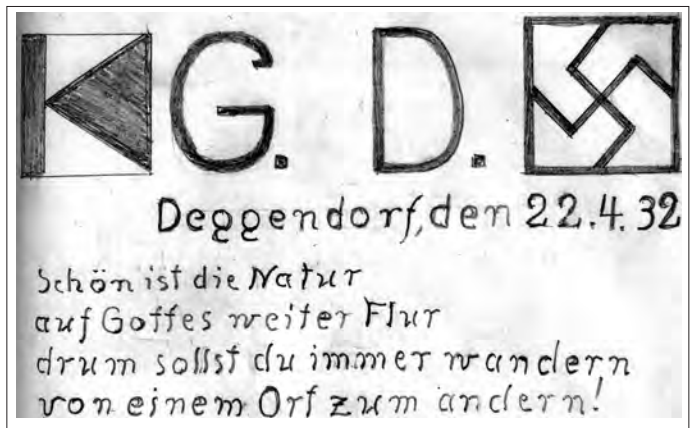 G. D.
Deggendorf, den 22.4.32
Schön ist die Natur
auf Gottes weiter Flur
drum sollst du immer wandern
von einem Ort zum andern!